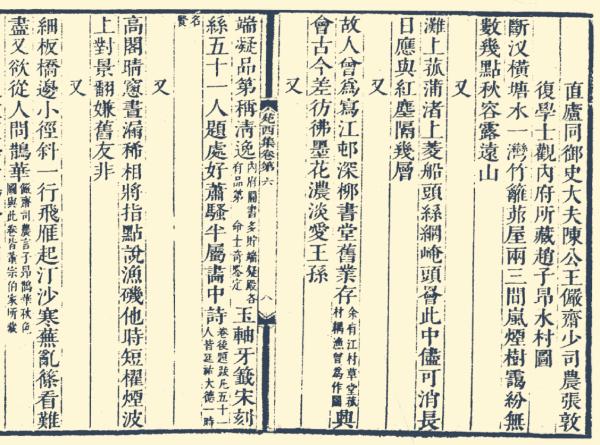 直廬同御史大夫陳公王儼齋少司農張敦
復學士觀内府所藏趙子昂水村圖
斷汊橫塘水一灣竹籬茆屋兩三間嵐煙樹靄紛無
數幾點秋容露遠山
又
灘上菰蒲渚上菱船頭絲網崦頭罾此中儘可消長
日應與紅塵隔幾層
又
故人曾爲寫江邨深柳書堂舊業存余有江村草堂菰村耦漁曾爲作圖興
會古今差彷彿墨花濃淡愛王孫
又
苑西集卷第六 八
端凝品弟稱清逸内府圖書多貯端凝殿各有品第 命士奇鑒定玉軸牙籤宋刻
絲五十一人題處好蕭騷半屬畵中詩卷後題跋凡五十一人皆延祐大德一時
名賢
又
高閣晴窻晝漏稀相將指點說漁磯他時短櫂煙波
上對景翻嫌舊友非
又
細板橋邊小徑斜一行飛雁起汀沙寒蕪亂篠看難
盡又欲從人問鵲華儼齋司農言子昂鵲華秋色圖與此卷皆董宗伯家所藏